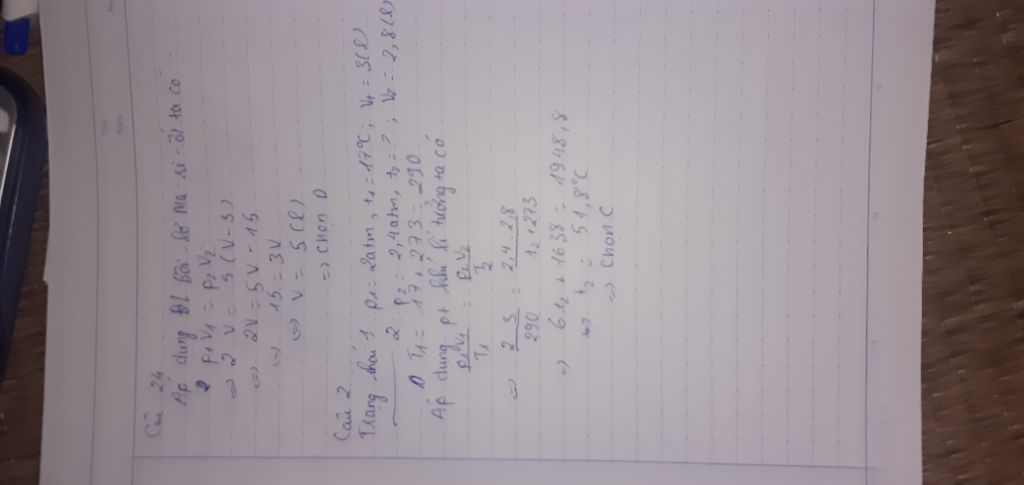 Thứ
Ngày
No.
Câu 24
Áp dụng ĐL Bôi-lơ Ma-ri-ốt ta có
p₁V₁ = p₂V₂
⇒ 2 V = 5 (V-3)
⇔ 2V = 5V - 15
⇔ 15 = 3V
⇔ V = 5 (l)
⇒ Chọn D
Câu 2
Trạng thái 1 p₁ = 2atm, t₁ = 17°C; V₁ = 3(l)
2 p₂ = 2,4atm, t₂ = ?; V₂ = 2,8(l)
T₁ = 17 + 273 = 290
Áp dụng pt khí lí tưởng ta có
p₁V₁/T₁ = p₂V₂/T₂
⇒ 2.3/290 = 2,4.2,8/t₂+273
⇒ 6t₂ + 1638 = 1948,8
⇔ t₂ = 51,8°C
⇒ Chọn C